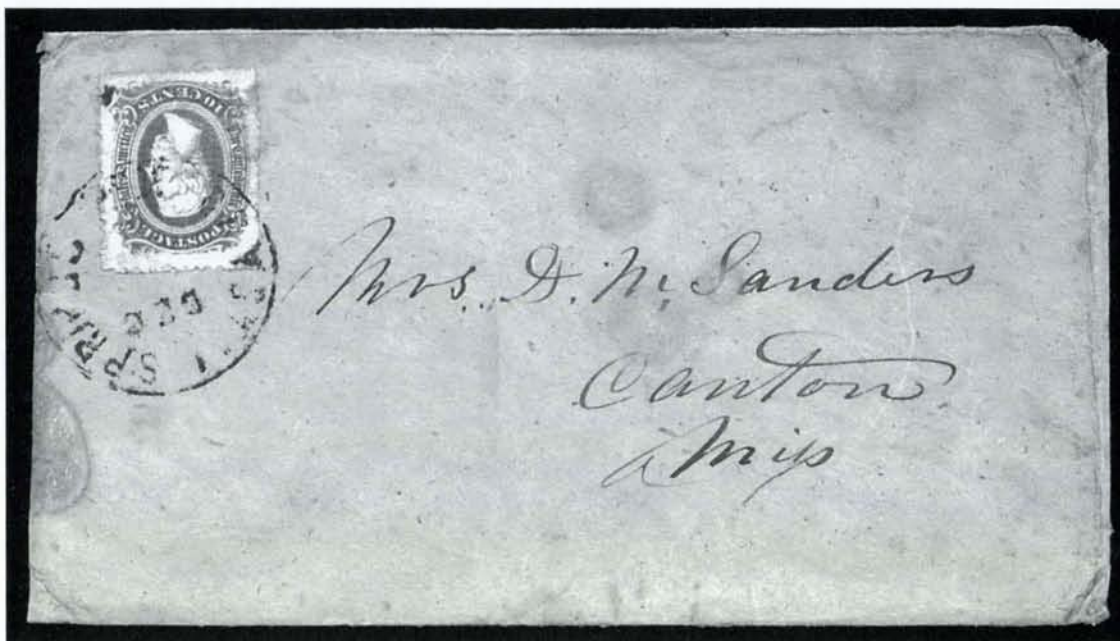 10 CENTS
POSTAGE
DEC
SPRI
Mrs. D. M. Sanders
Canton
Miſs